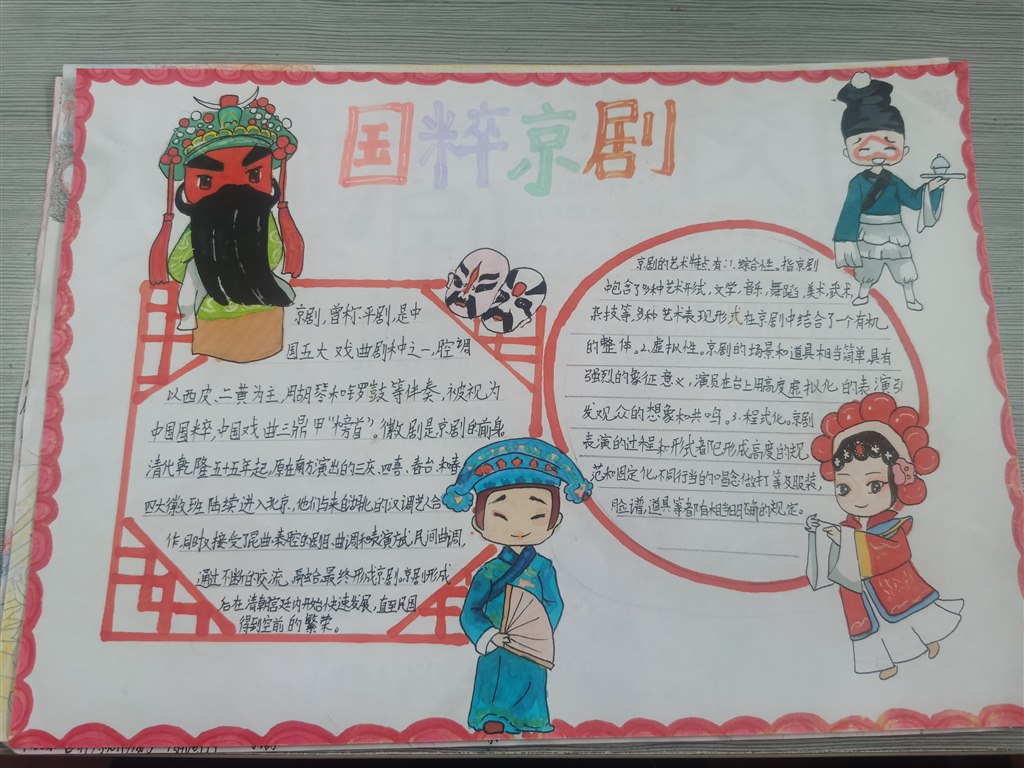 国粹京剧
京剧,曾称平剧,是中
国五大戏曲剧种之一,腔调
以西皮、二黄为主,用胡琴和锣鼓等伴奏,被视为
中国国粹,中国戏曲三鼎甲"榜首"。徽剧是京剧的前身
清代乾隆五十五年起,原在南方演出的三庆、四喜、春台、和春
四大徽班陆续进入北京,他们与来自湖北的汉调艺合
作,同时又接受了昆曲、秦腔的剧目、曲调和表演方式,民间曲调,
通过不断的交流,融会最终形成京剧。京剧形成
后在清朝宫廷内开始快速发展,直至民国
得到空前的繁荣。
京剧的艺术特点有:1.综合性。指京剧
中包含了多种艺术形式,文学,音乐,舞蹈,美术,武术,
杂技等,多种艺术表现形式在京剧中结合了一个有机
的整体。2.虚拟性。京剧的场景和道具相当简单,具有
强烈的象征意义,演员在台上用高度虚拟化的表演引
发观众的想象和共鸣。3.程式化。京剧
表演的过程和形式都已形成高度的规
范和固定化,不同行当的唱念做打等及服装,
脸谱,道具等都有相当明确的规定。